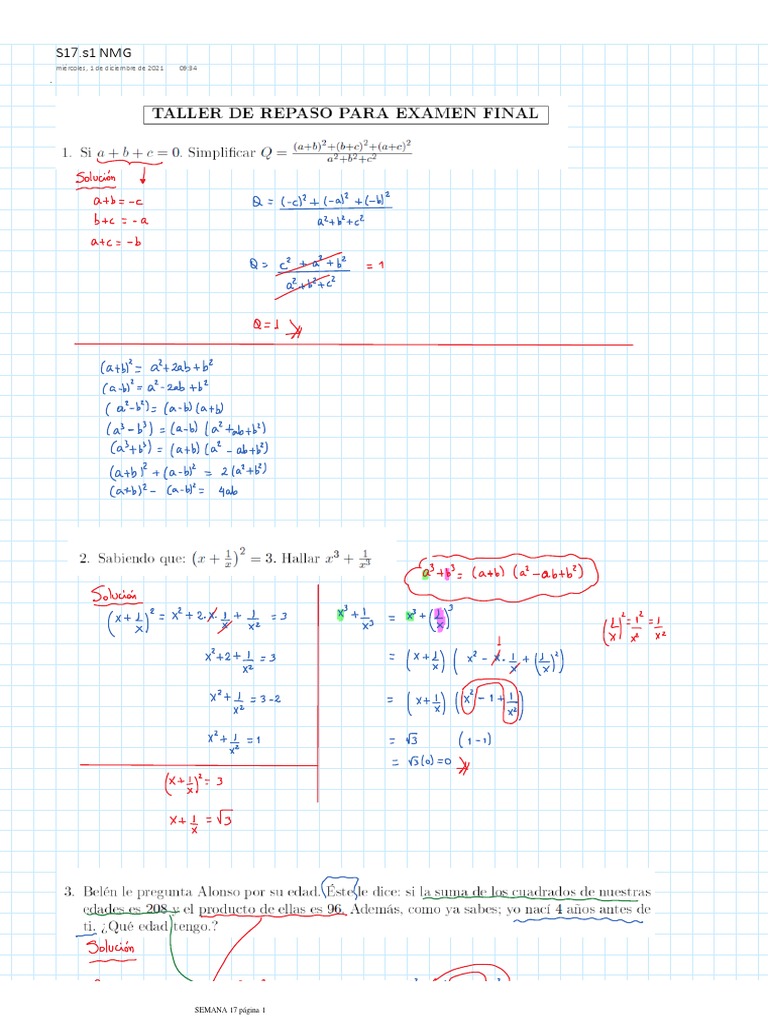 S17.s1 NMG
miércoles, 1 de diciembre de 2021 09:34
TALLER DE REPASO PARA EXAMEN FINAL
1. Si a + b + c = 0. Simplificar Q = ((a+b)²+(b+c)²+(a+c)²)/(a²+b²+c²)
Solución
a+b = -c
b+c = -a
a+c = -b
Q = ((-c)² + (-a)² + (-b)²)/(a²+b²+c²)
Q = (c² + a² + b²)/(a²+b²+c²) = 1
Q = 1
(a+b)² = a²+2ab+b²
(a-b)² = a²-2ab+b²
(a²-b²) = (a-b)(a+b)
(a³-b³) = (a-b)(a²+ab+b²)
(a³+b³) = (a+b)(a²-ab+b²)
(a+b)² + (a-b)² = 2(a²+b²)
(a+b)² - (a-b)² = 4ab
2. Sabiendo que: (x + 1/x)² = 3. Hallar x³ + 1/x³
a³+b³ = (a+b)(a²-ab+b²)
Solución
(x+1/x)² = x²+2·x·1/x + 1/x² = 3
x²+2+1/x² = 3
x²+1/x² = 3-2
x²+1/x² = 1
(x+1/x)² = 3
x+1/x = √3
x³+1/x³ = x³+(1/x)³
= (x+1/x)(x²-x·1/x+(1/x)²)
= (x+1/x)(x²-1+1/x²)
= √3 (1-1)
= √3(0) = 0
(1/x)² = 1²/x² = 1/x²
3. Belén le pregunta Alonso por su edad. Éste le dice: si la suma de los cuadrados de nuestras
edades es 208 y el producto de ellas es 96. Además, como ya sabes; yo nací 4 años antes de
ti. ¿Qué edad tengo.?
Solución
SEMANA 17 página 1